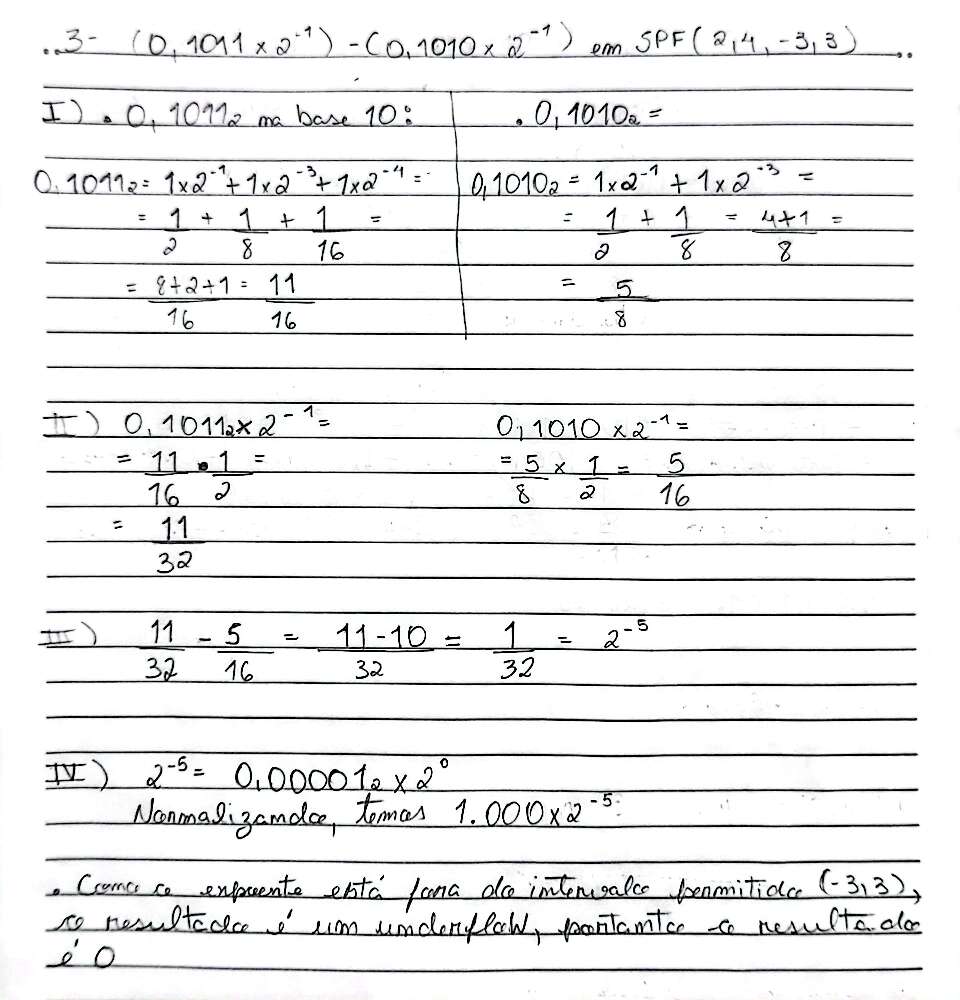 ..3- (0,1011 x 2⁻¹) - (0,1010 x 2⁻¹) em SPF(2,4,-3,3) ..
I) . 0,1011₂ na base 10:
0,1011₂ = 1x2⁻¹ + 1x2⁻³ + 1x2⁻⁴ =
= 1/2 + 1/8 + 1/16 =
= 8+2+1/16 = 11/16
. 0,1010₂ =
0,1010₂ = 1x2⁻¹ + 1x2⁻³ =
= 1/2 + 1/8 = 4+1/8 =
= 5/8
II) 0,1011₂x2⁻¹=
= 11/16 • 1/2 =
= 11/32
0,1010 x2⁻¹=
= 5/8 x 1/2 = 5/16
III) 11/32 - 5/16 = 11-10/32 = 1/32 = 2⁻⁵
IV) 2⁻⁵ = 0,00001₂ x 2⁰
Normalizando, temos 1.000 x 2⁻⁵
. Como o expoente está fora do intervalo permitido (-3,3),
o resultado é um underflow, portanto o resultado
é 0